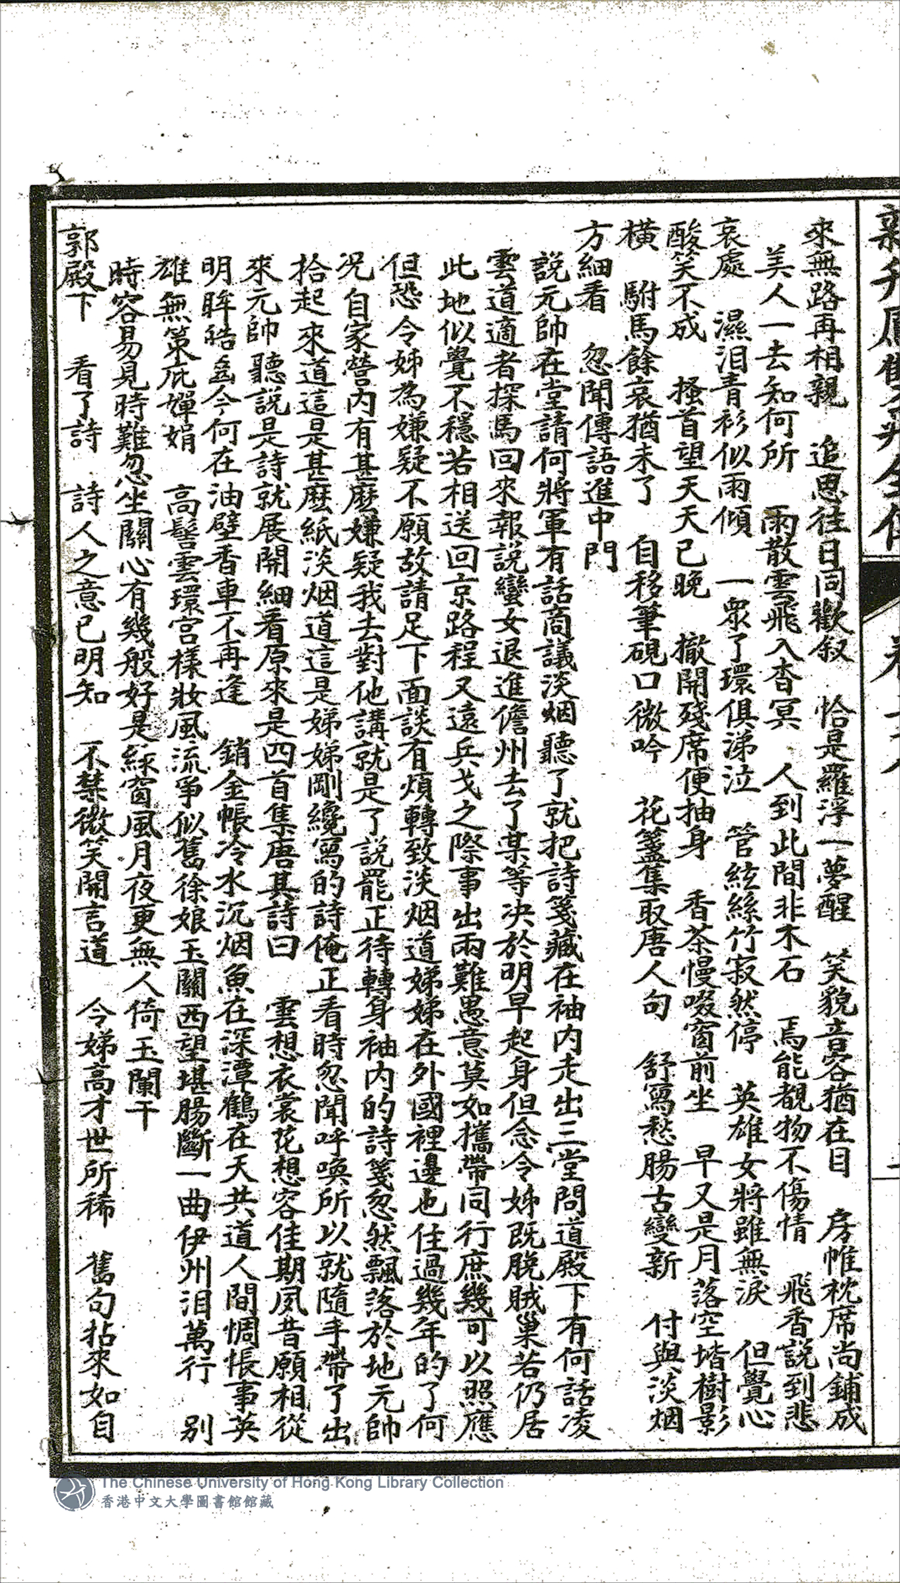 來無路再相親　追思往日同歡叙　恰是羅浮一夢醒　笑貌音容猶在目　房帷枕席尚鋪成
美人一去知何所　雨散雲飛入杳冥　人到此間非木石　焉能覩物不傷情　飛香説到悲
哀處　濕泪青衫似雨傾　一衆了環俱涕泣　管絃絲竹寂然停　英雄女將雖無淚　但覺心
酸笑不成　搔首望天天已晚　撤開殘席便抽身　香茶慢啜窗前坐　早又是月落空堦樹影
橫　駙馬餘哀猶未了　自移筆硯口微吟　花箋集取唐人句　舒寫愁腸古變新　付與淡烟
方細看　忽聞傳語進中門
説元帥在堂請何將軍有話商議淡烟聽了就把詩箋藏在袖内走出三堂問道殿下有何話凌
雲道適者探馬回來報説蠻女退進儋州去了某等決於明早起身但念令姊既脱賊巢若仍居
此地似覺不穩若相送回京路程又遠兵戈之際事出兩難愚意莫如攜帶同行庶幾可以照應
但恐令姊為嫌疑不願故請足下面談有煩轉致淡烟道娣娣在外國裡邊也住過幾年的了何
况自家營内有甚麽嫌疑我去對他講就是了説罷正待轉身袖内的詩箋忽然飄落於地元帥
拾起來道這是甚麽紙淡烟道這是娣娣剛纔寫的詩俺正看時忽聞呼喚所以就隨手帶了出
來元帥聽説是詩就展開細看原來是四首集唐其詩曰　雲想衣裳花想容佳期夙昔願相從
明眸皓齒今何在油壁香車不再逢　銷金帳冷水沉烟魚在深潭鶴在天共道人間惆悵事英
雄無策庇嬋娟　高髻雲環宮樣妝風流爭似舊徐娘玉關西望堪腸斷一曲伊州泪萬行　别
時容易見時難忽坐關心有幾般好是綠窗風月夜更無人倚玉闌干
郭殿下　看了詩　詩人之意已明知　不禁微笑開言道　令娣高才世所稀　舊句拈來如自
The Chinese University of Hong Kong Library Collection
香港中文大學圖書館館藏